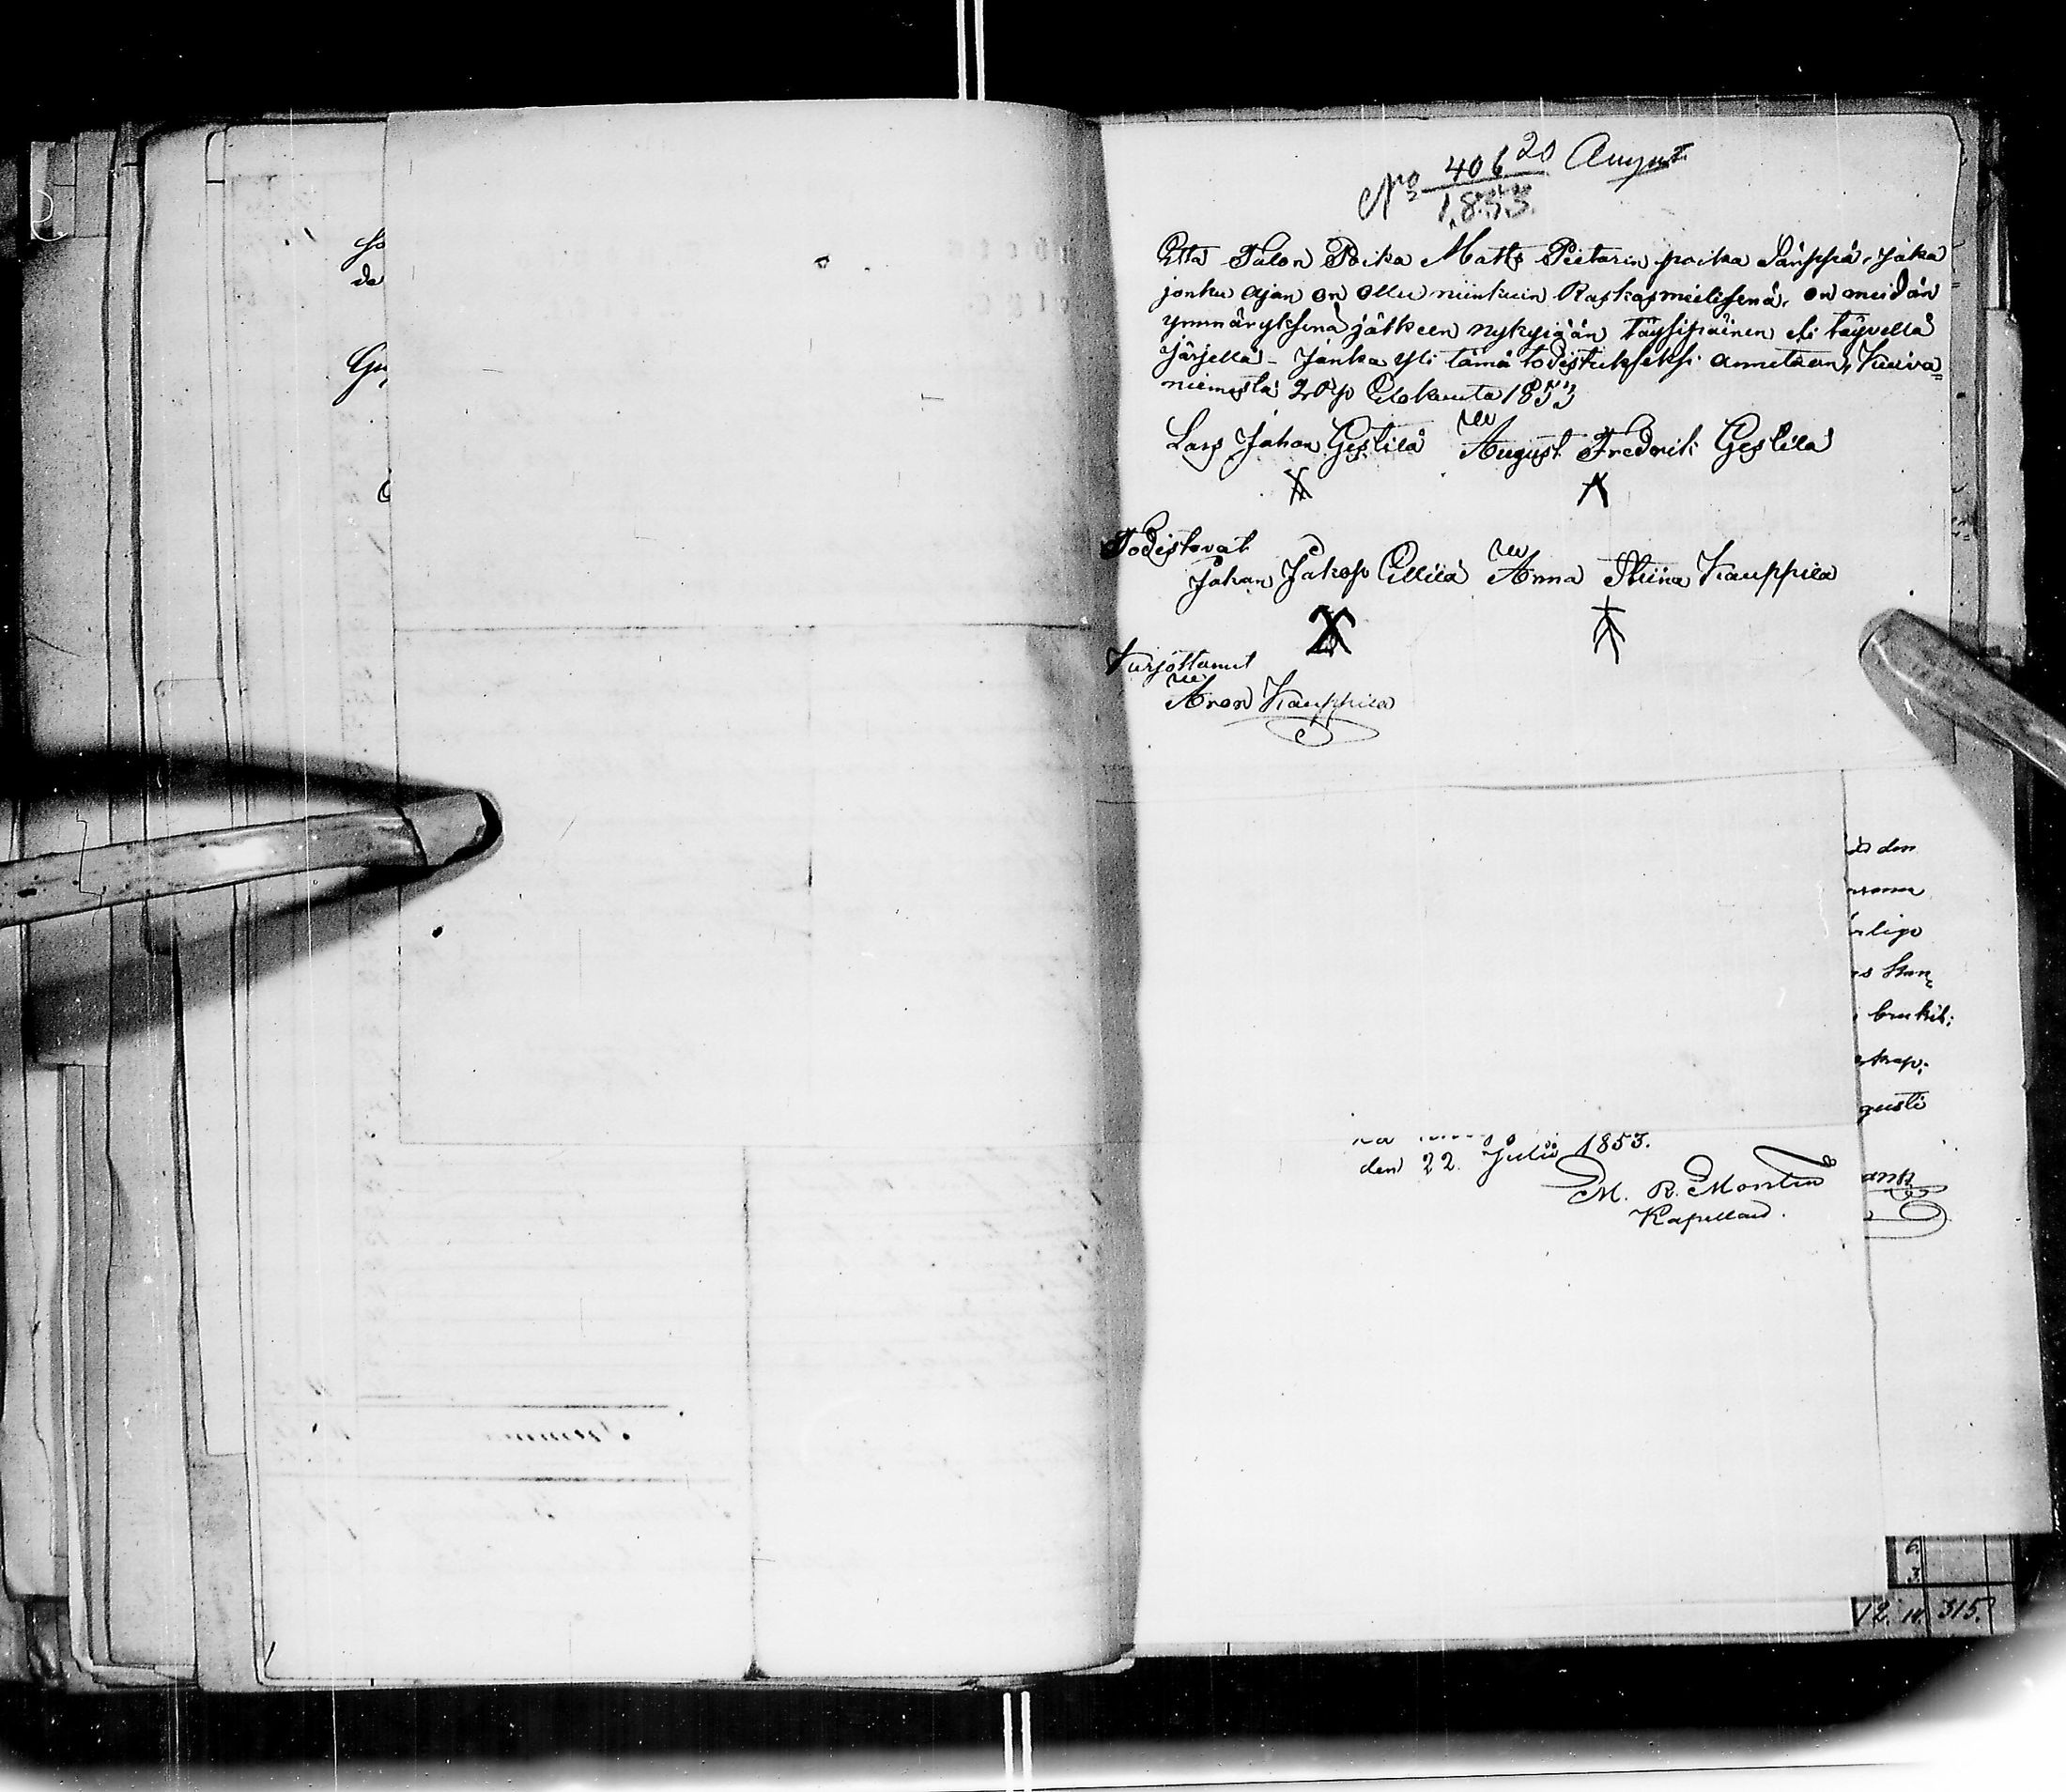 No 406 20 August
1853.
Että Talon Poika Matts Pietarin poika Särppä, joka
jonku ajan on ollu niinkuin Raskasmielisenä, on meidän
ymmäryksenä jälkeen nykyjään täysipäinen eli täyvellä
järjellä – jonka yli tämä todistukseksi annetaan, Kuiva=
niemestä 20 p Elokuuta 1853
Lars Johan Gestilä August Fredrik Gestilä
Todistavat
Johan Jakop Ollila Anna Stiina Kauppila
kirjottanut
Aron Kauppila
den 22. Julii 1853.
M. R. Montin
Kapellan.
so
de
ds den
brukit;
gusti
6.
3.
12. 14. 315.